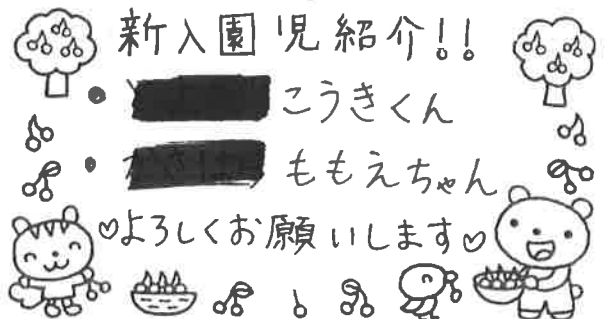 新入園児紹介!!
• こうきくん
• ももえちゃん
♡よろしくお願いします♡